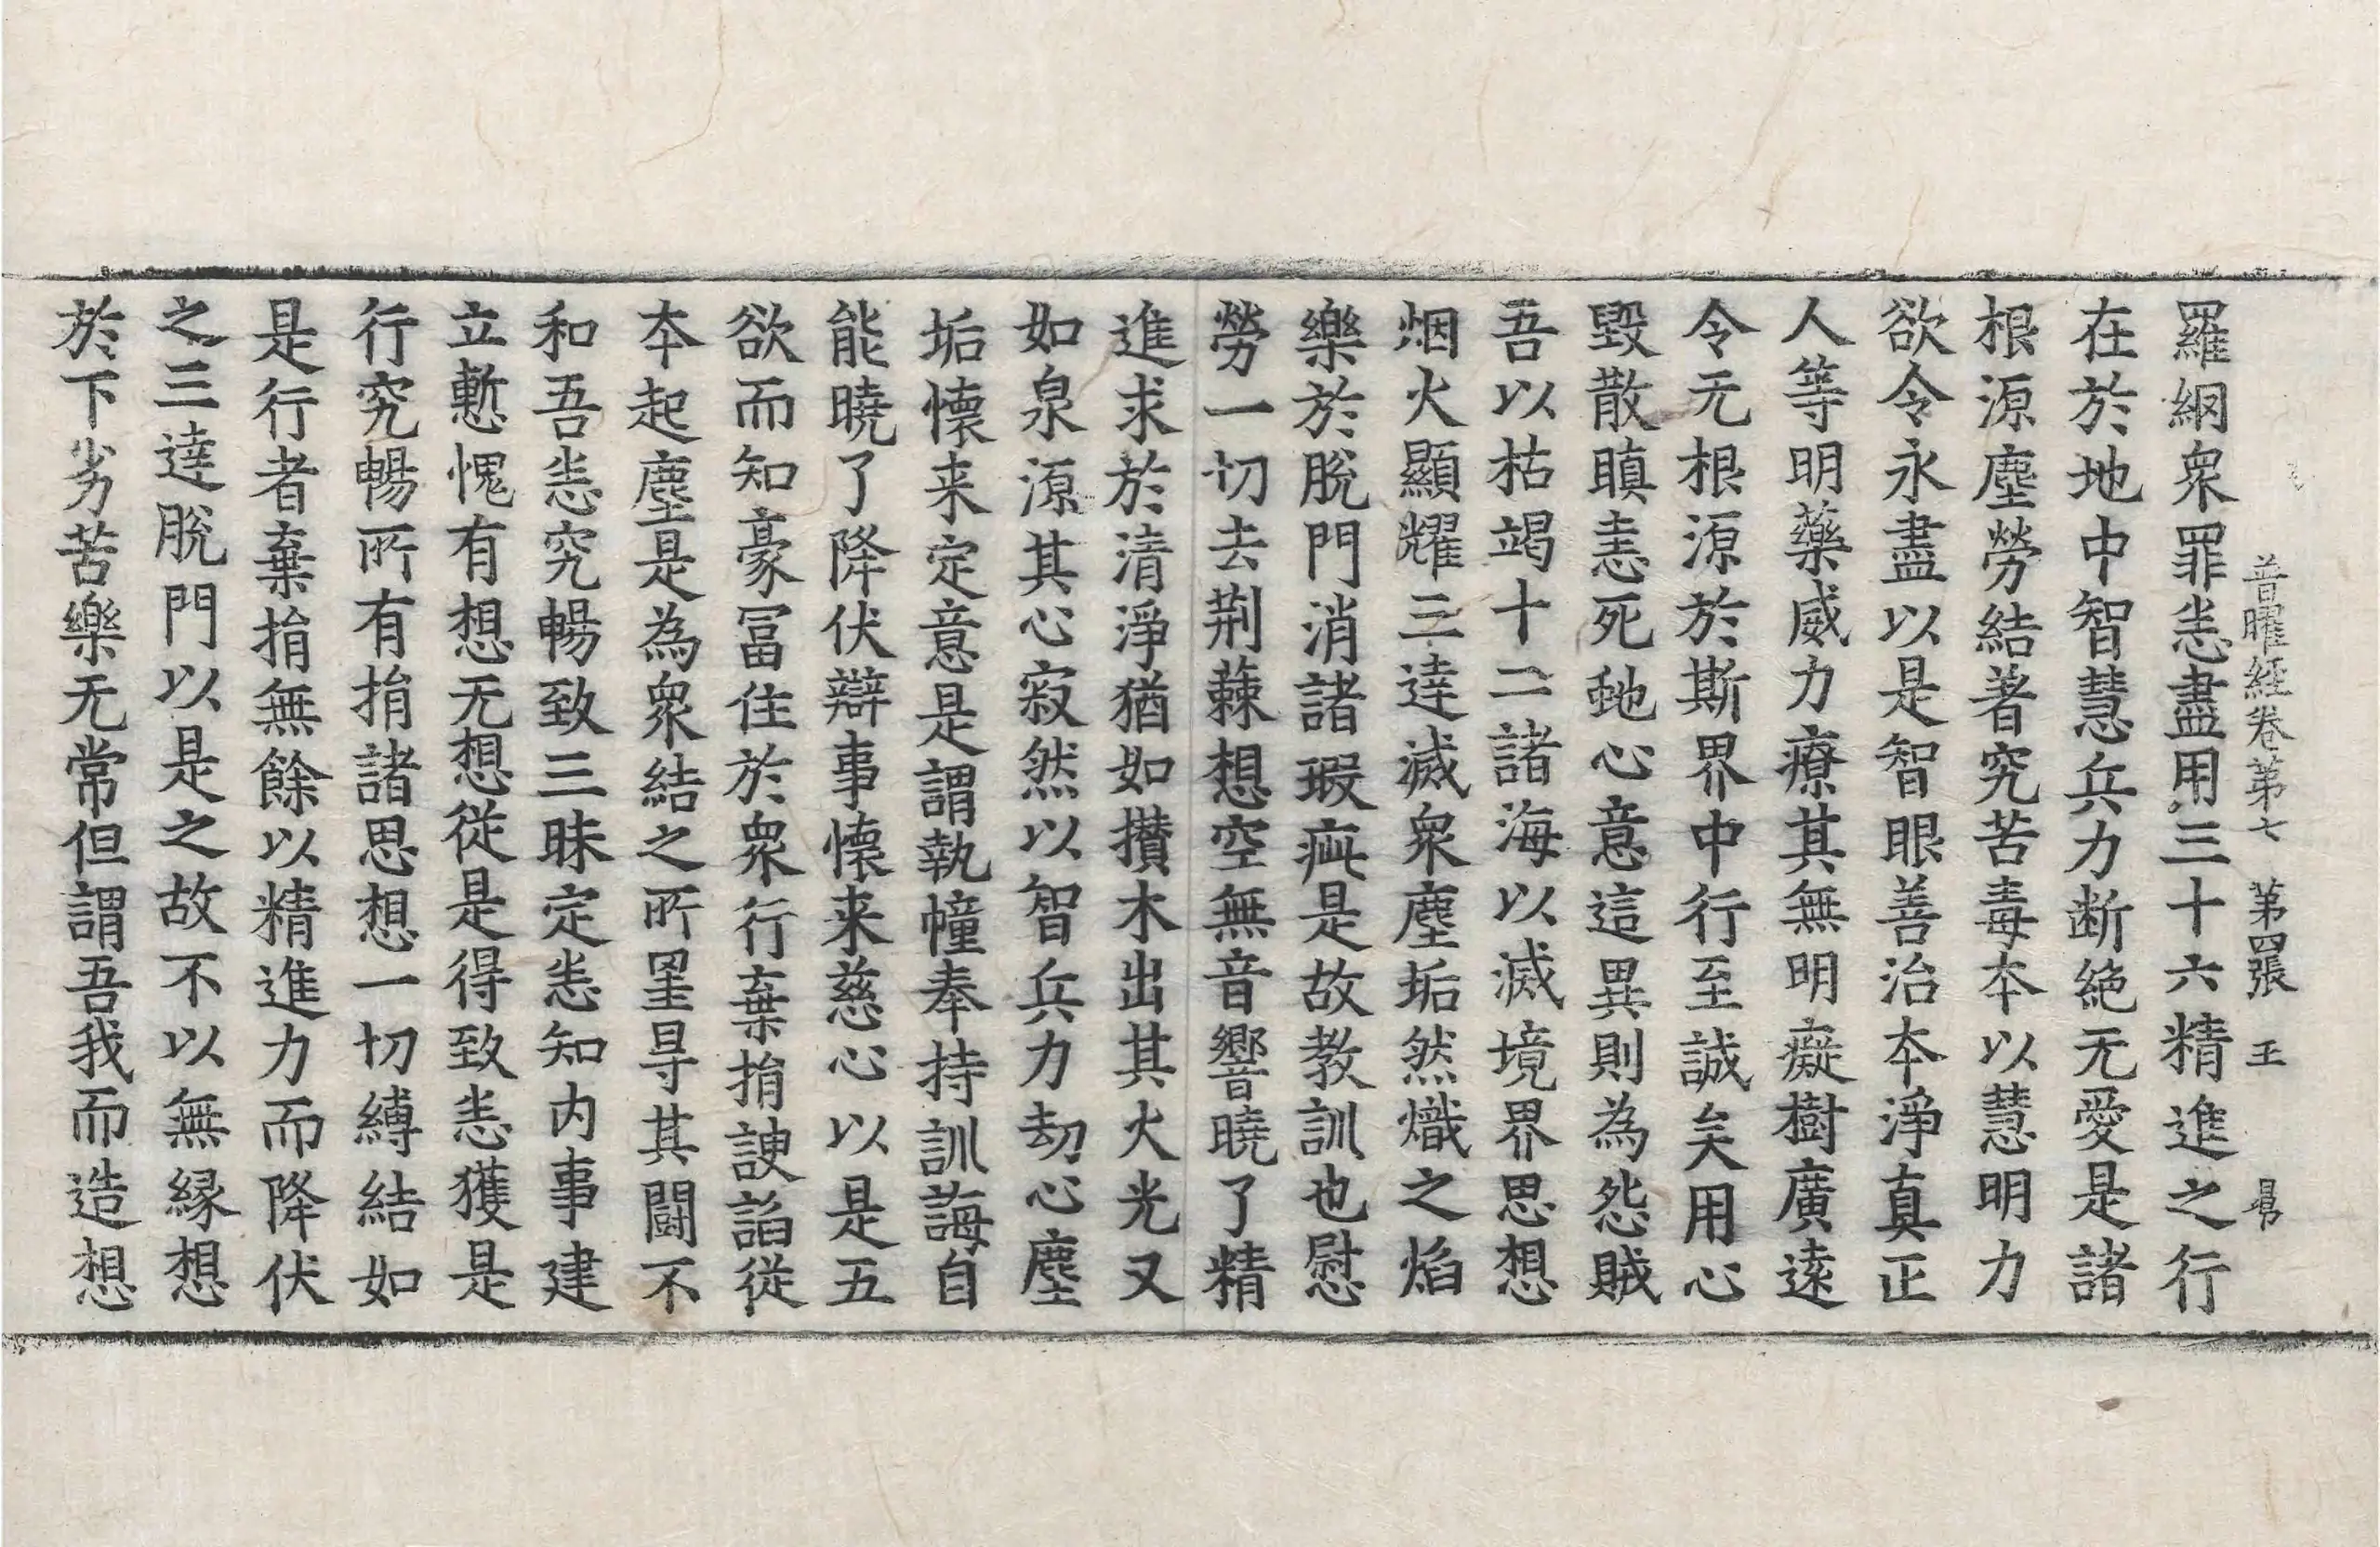 普曜經卷第七　第四張　王　昌
羅網衆罪恙盡用三十六精進之行
在於地中智慧兵力断絶无愛是諸
根源塵勞結著究苦毒夲以慧明力
欲令永盡以是智眼善治夲淨真正
人等明藥威力療其無明癡樹廣逺
令无根源於斯界中行至誠矣用心
毀散瞋恚死虵心意這異則為怨賊
吾以枯竭十二諸海以滅境界思想
烟火顯耀三逹滅衆塵垢然熾之焰
樂於脫門消諸瑕疵是故教訓也慰
勞一切去荆蕀想空無音響曉了精
進求於清淨猶如攢木出其火光又
如泉源其心寂然以智兵力刧心塵
垢懷来定意是謂執幢奉持訓誨自
能曉了降伏辯事懷来慈心以是五
欲而知豪冨住於衆行棄捐諛諂從
夲起塵是為衆結之所罣㝵其闘不
和吾恙究暢致三昧定恙知内事建
立慙愧有想无想從是得致恙獲是
行究暢所有捐諸思想一切縛結如
是行者棄捐無餘以精進力而降伏
之三逹脫門以是之故不以無縁想
於下劣苦樂无常但謂吾我而造想